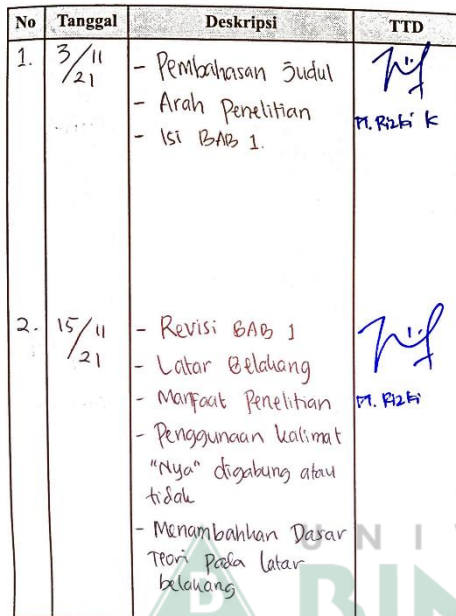 No Tanggal Deskripsi TTD
1. 3/11/21 - Pembahasan Judul
- Arah Penelitian
- Isi BAB 1.
M. Rizki K
2. 15/11/21 - Revisi BAB 1
- Latar Belakang
- Manfaat Penelitian
M. Rizki
- Penggunaan kalimat
"Nya" digabung atau
tidak
- Menambahkan Dasar
Teori pada latar
belakang
U N I
B BIN